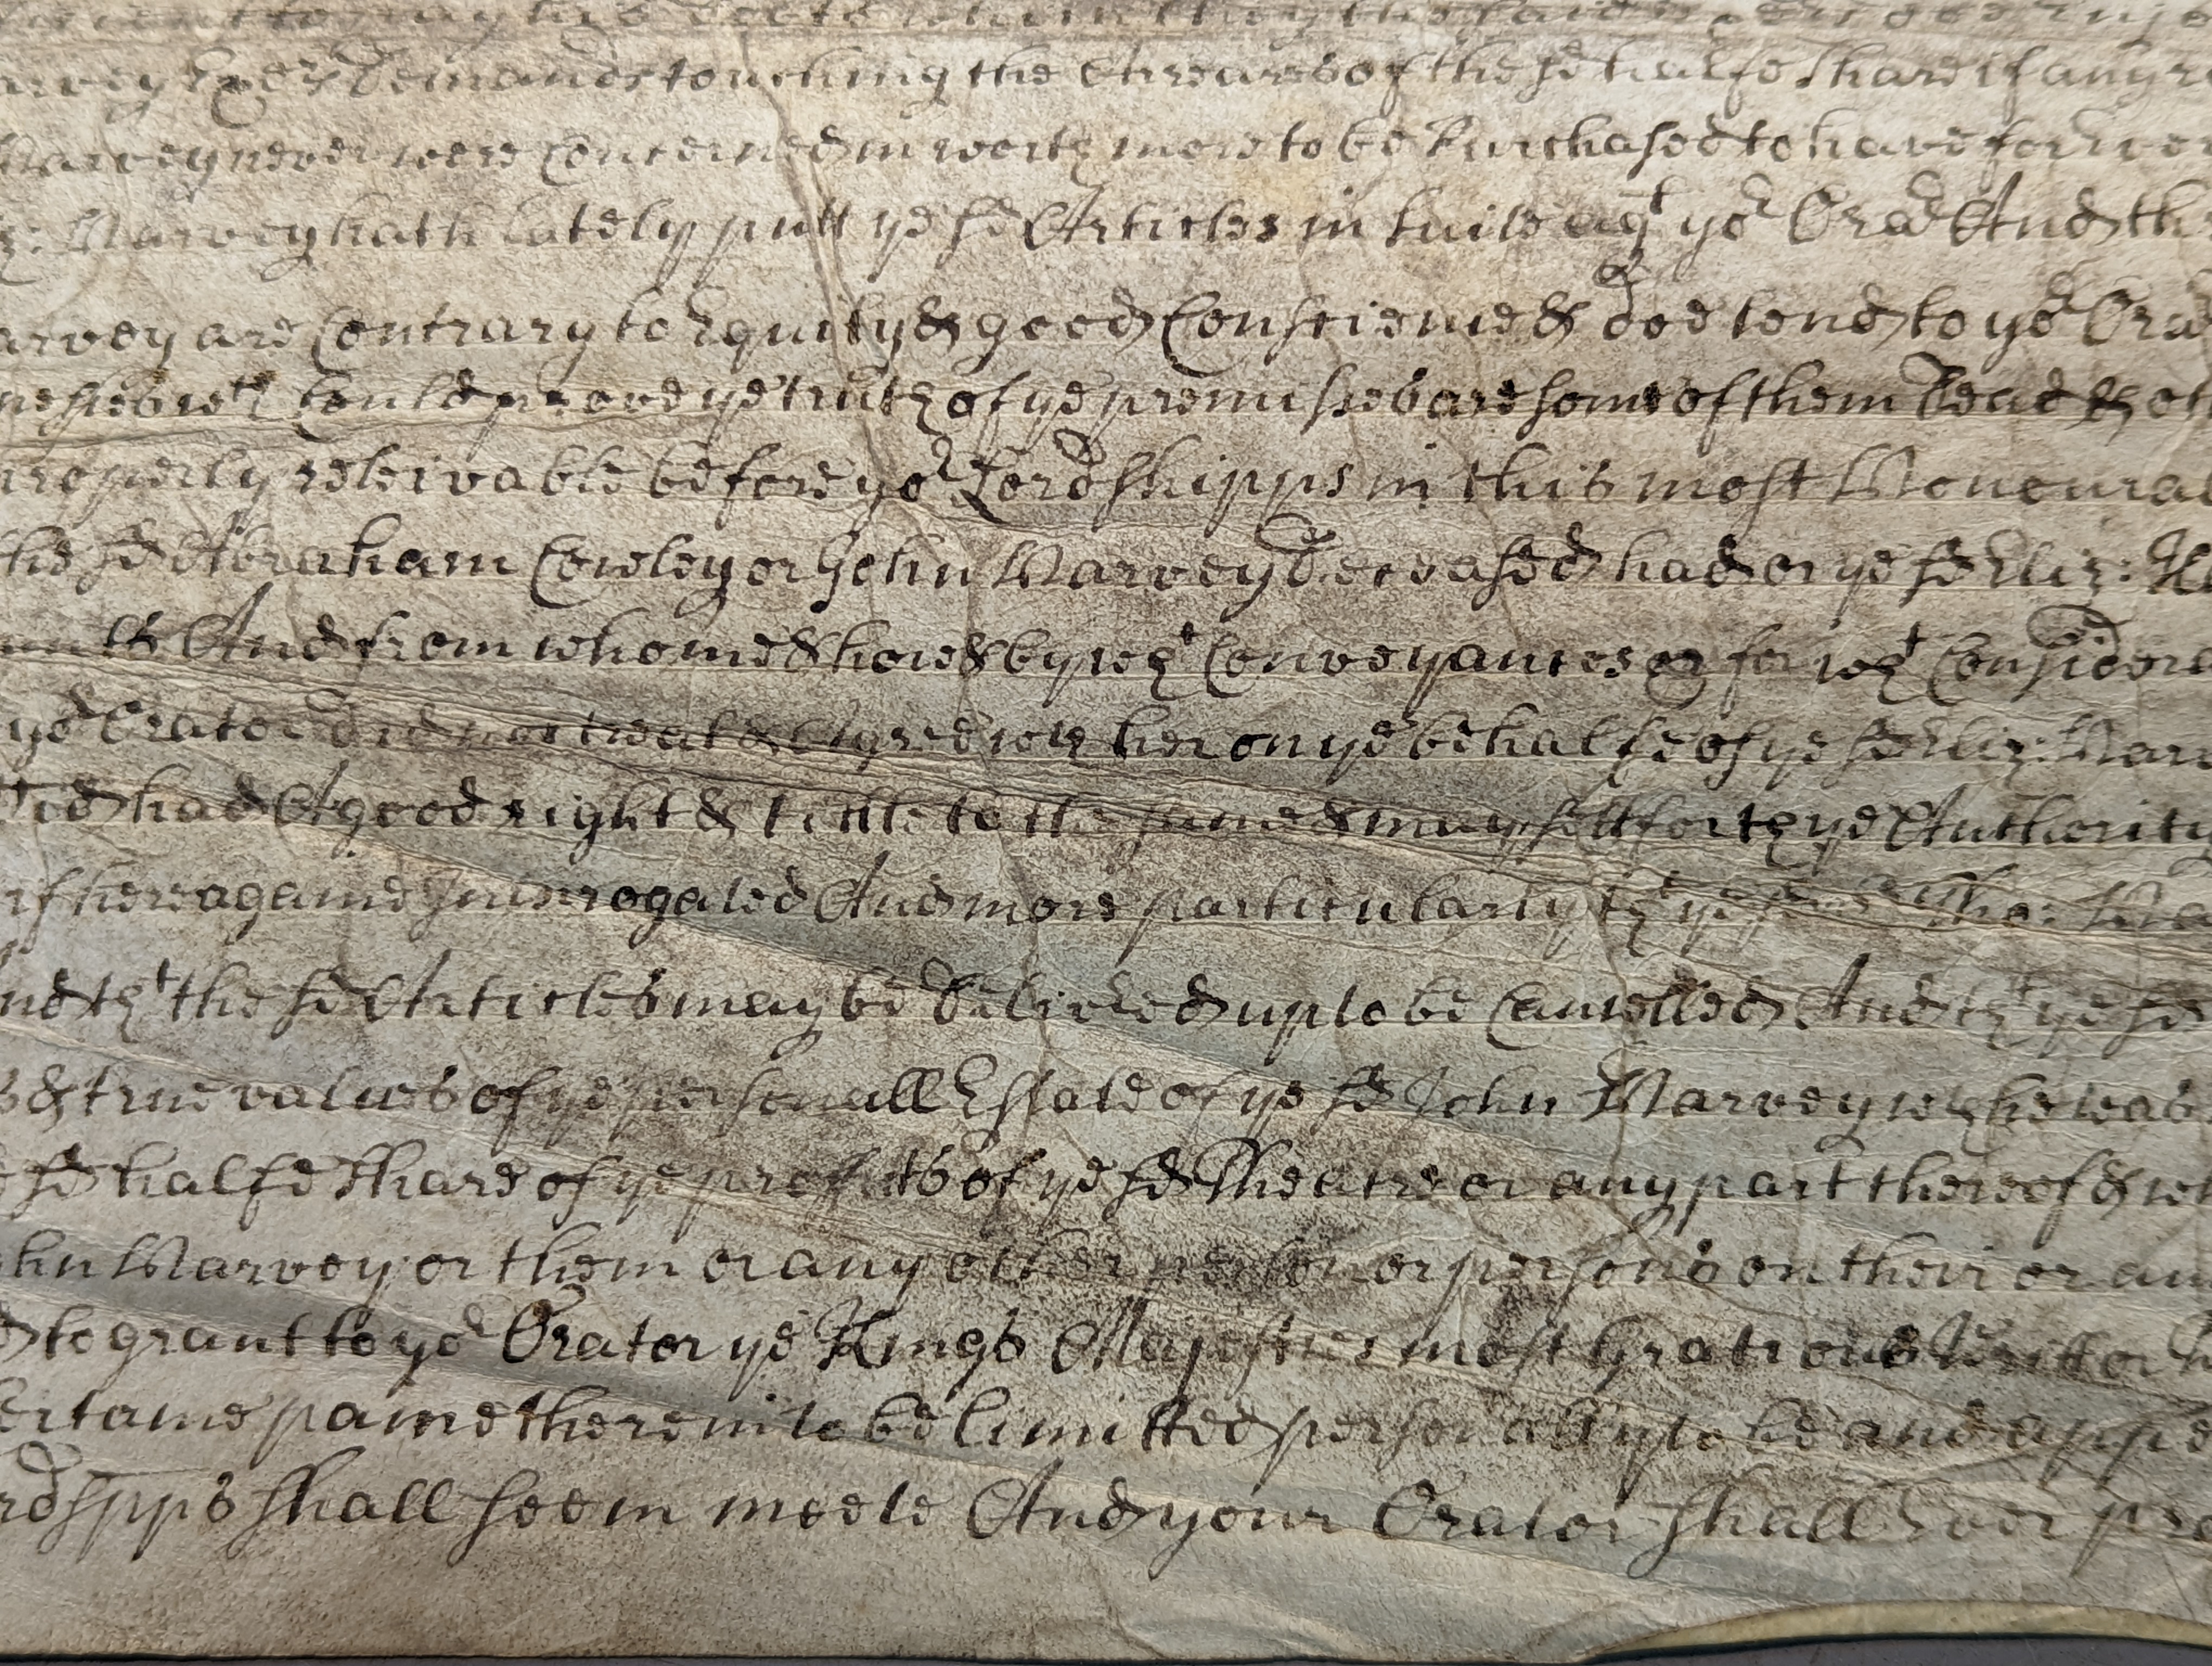 arvey Exers demands touching the Arreares of the sd halfe share if any
Harvey never were Concerned in worth more to be Purchased to have for
Harvey hath lately putt ye sd Articles in suite agt yor Orator And th
arvey are Contrary to Equity & good Conscience & doe tend to yor Ora
nesses wch could prove ye truth of ye premisses are some of them Dead & ot
properly releivable before yor Lordshipps in this most Honoura
the sd Abraham Cowley or John Harvey Deceased had or ye sd Eliz: H
And from whome & how & by wht Conveyances or for wht Consider
yor Orator did not treat & Agree wth her on ye behalfe of ye sd Eliz: Harv
Did had A good right & tittle to the same & may sett forth ye Authority
if here againe Interrogated And more particularly tht ye sd
And tht the sd Articles may be Delivered up to be Cancelled And tht ye sd
s & true values of ye personall Estate of ye sd John Harvey wch he was
sd halfe share of ye proffitts of ye sd Theatre or any part thereof & wt
ohn Harvey or them or any other person or persons on their or an
to grant to yor Orator ye Kings Majesties most Gratious Writt or
certaine paine therein to be limitted personally to be and appe
rdshipps shall seem meete And your Orator shall Ever pra